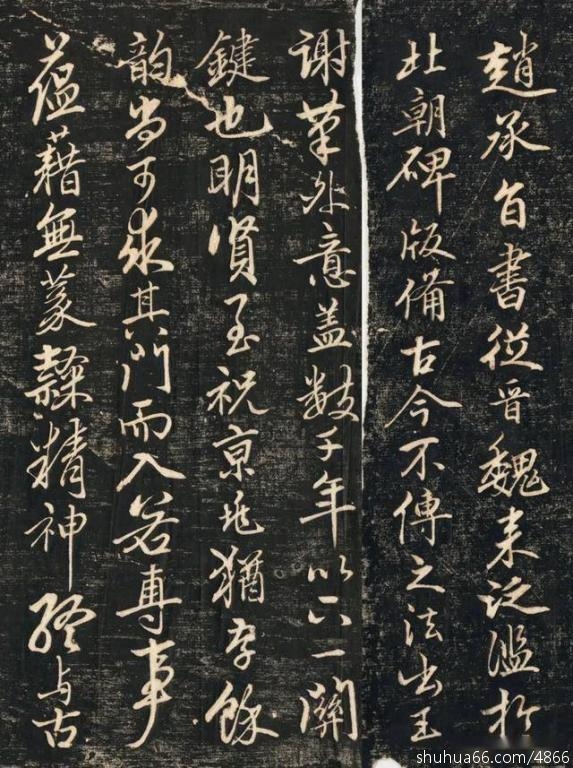 趙承旨書從晉魏来泛濫於
北朝碑版備古今不傳之法出王
謝筆外意蓋數千年以下一關
鍵也明賢至祝京兆猶存餘
韵尚可求其門而入若專事
藴藉無篆隸精神終与古
shuhua66.com/4866